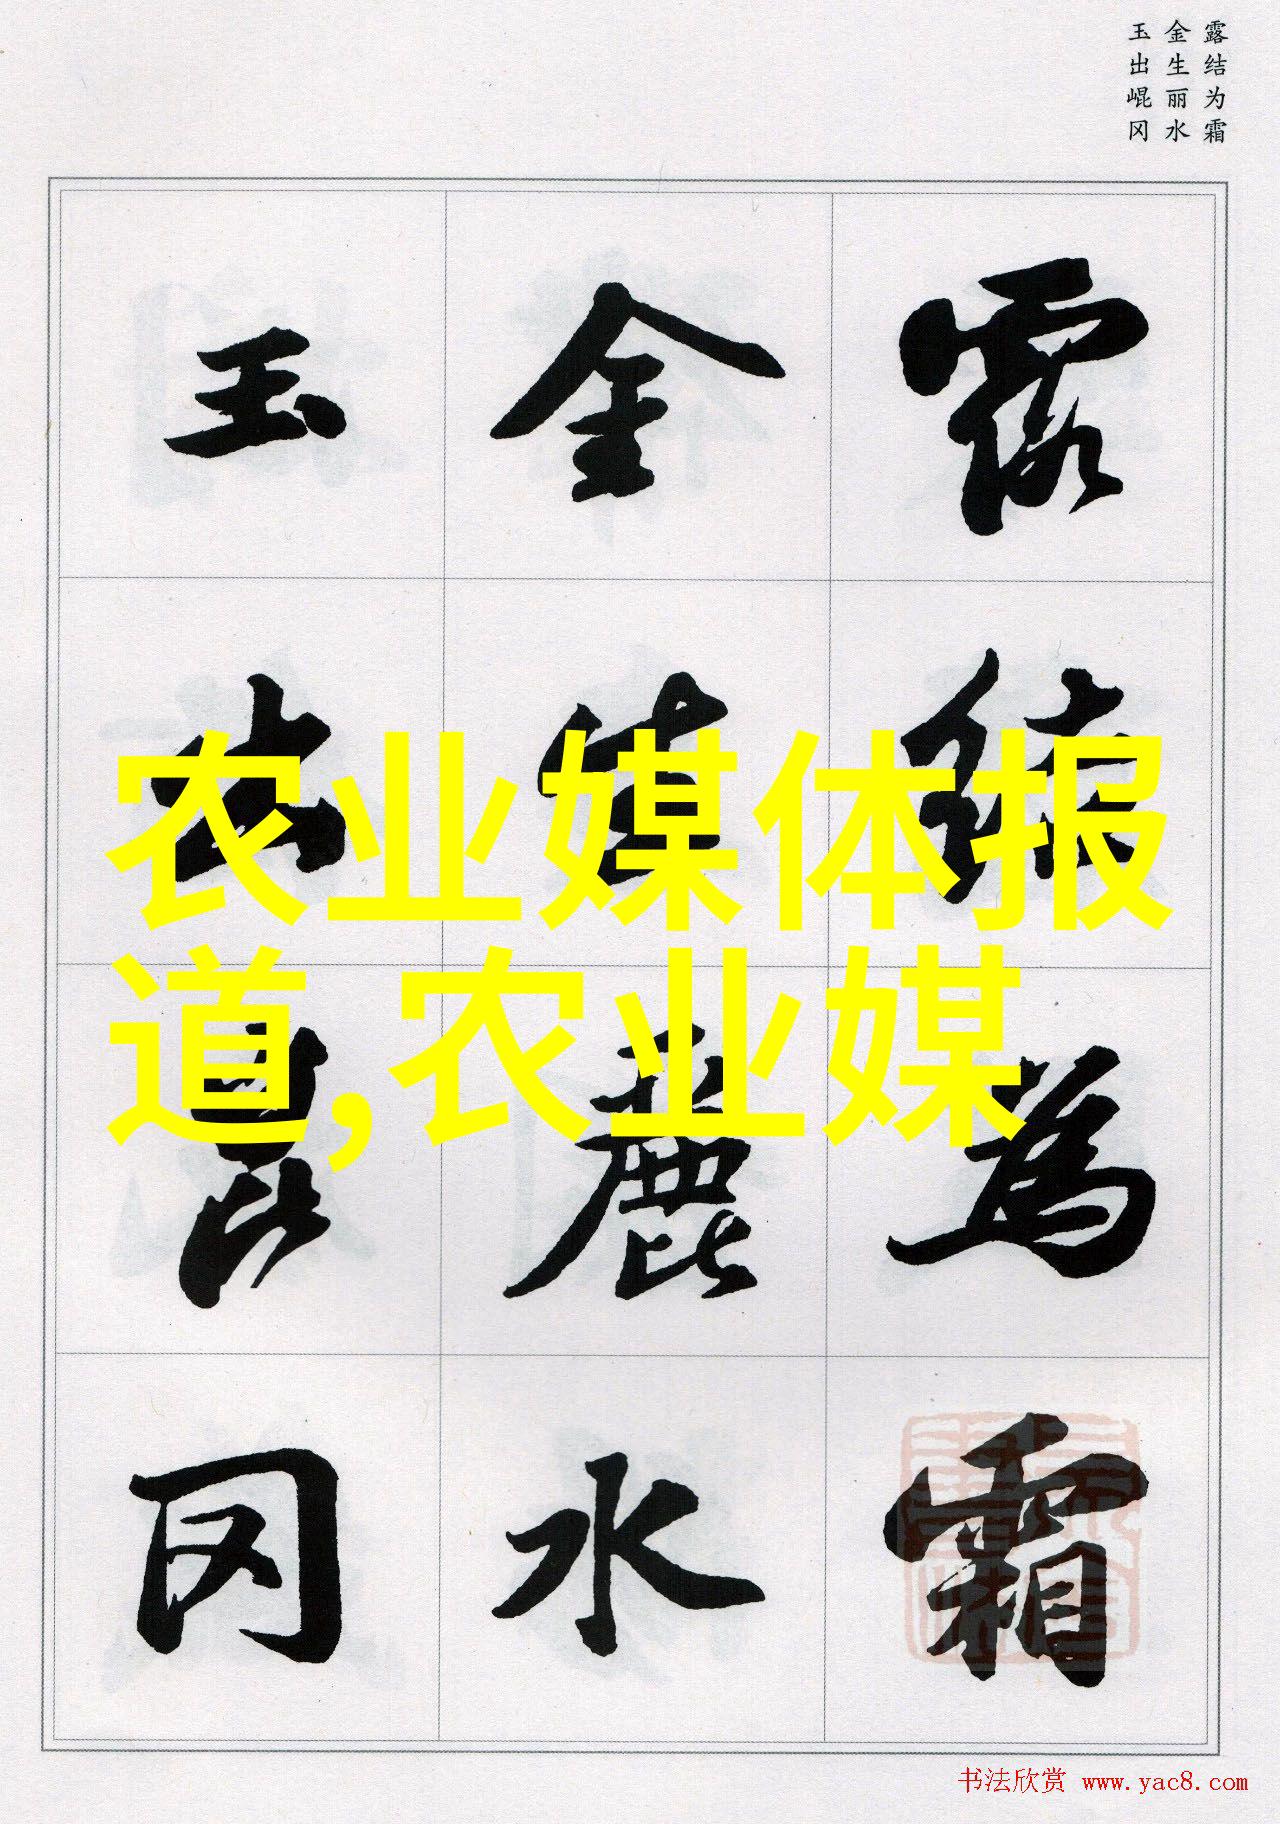 露结为霜
金生丽水
玉出崐冈
露结为霜
金生麗水
玉出崑冈
农业媒体报
道,农业媒
书法欣赏 www.yac8.com